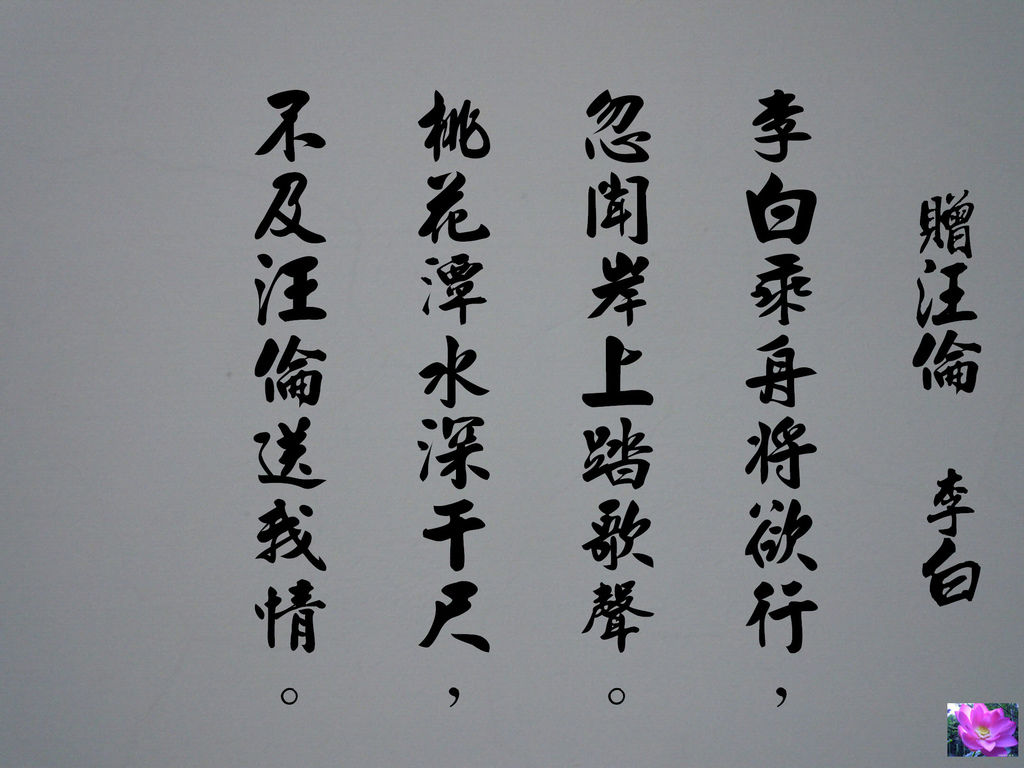 贈汪倫 李白
李白乘舟將欲行，
忽聞岸上踏歌聲。
桃花潭水深千尺，
不及汪倫送我情。